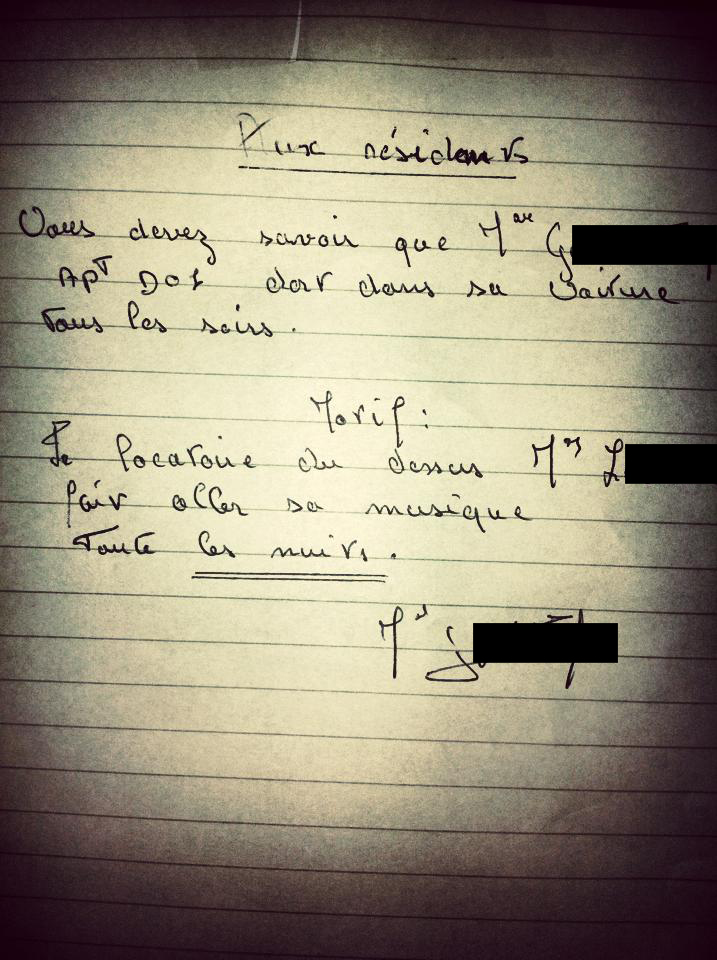 Aux résidents
Vous devez savoir que Mme G
Apt D01 dort dans sa voiture
tous les soirs.
Motif :
Le locataire du dessus Mrs L
fait aller sa musique
toute les nuits.